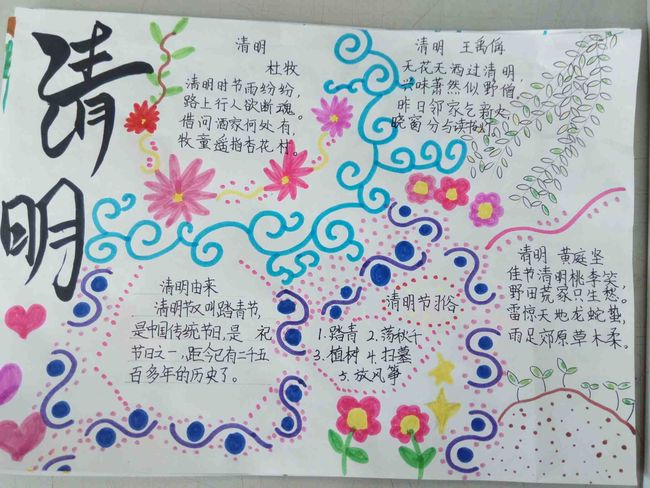 清明
清明
杜牧
清明时节雨纷纷,
路上行人欲断魂。
借问酒家何处有,
牧童遥指杏花村。
清明 王禹偁
无花无酒过清明,
兴味萧然似野僧
昨日邻家乞新火
晓窗分与读书灯。
清明 黄庭坚
佳节清明桃李笑,
野田荒冢只生愁。
雷惊天地龙蛇蛰,
雨足郊原草木柔。
清明由来
清明节又叫踏青节,
是中国传统节日,是 祀
节日之一,距今已有二千五
百多年的历史了。
清明节习俗
1.踏青 2.荡秋千
3.植树 4.扫墓
5.放风筝